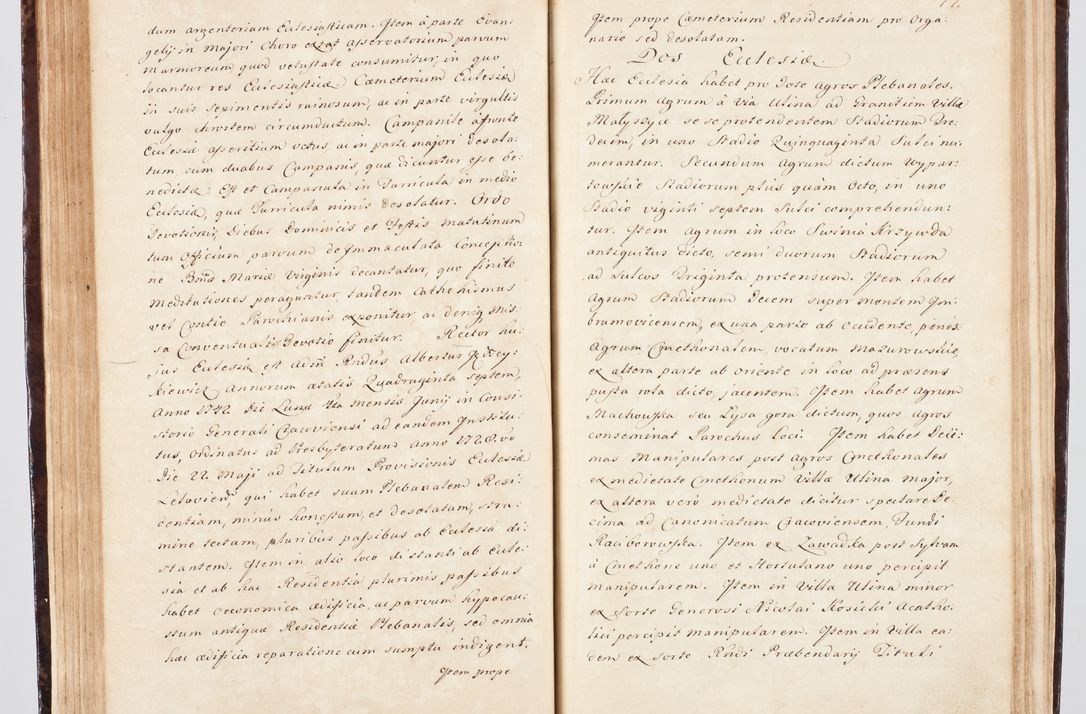 dum argenteriam Ecclesiasticam. Item à parte Evan:
gelij in Majori Choro extat asservatorium parvum
marmoreum, quod vetustate consumitur, in quo
locantur res Ecclesiasticæ Cæmeterium Ecclesiæ
in suis sepimentis ruinosum, ac in parte virgultis
vulgo chrostem circumductum. Campanile à fronte
Ecclesiæ asseritium vetus ac in parte majori desola:
tum, cum duabus Campanis, quæ dicuntur esse be:
nedictæ Est et Campanula in Turricula in medio
Ecclesiæ, quæ Turricula nimis desolatur. Ordo
Devotionis, Diebus Dominicis et Festis matutinum
tum Officium, parvum de Immaculata Conceptio:
ne Bmæ Mariæ Virginis decantatur, quo finito
meditationes peraguntur, tandem Cathehismus
vel Contio Parochianis exponitur, ac deniq mis:
sa Conventuali Devotio finitur. Rector hu:
jus Ecclesiæ est Adm Rndus Albertus
kiewicz Annorum ætatis Quadraginta septem,
Anno 1742 Die Lunæ 4ta mensis Junij in Consi:
storio Generali Cracoviensi ad eandem Institu:
tus, ordinatus ad Presbyteratum Anno 1728.vo
Die 22 Maji ad Titulum Provisionis Ecclesiæ
Letoviens, qui habet suam Plebanalem Resi:
dentiam, minus honestam, et desolatam, stra:
mine tectam, pluribus passibus ab Ecclesia di:
stantem. Item in alio loco distanti ab Eccle:
sia et ab hac Residentia plurimis passibus
habet oeconomica ædificia, ac parvum hypocau:
stum antiquæ Residentiæ Plebanalis, sed omnia
hæc ædificia reparatione cum sumptu indigent.
Item prope
Item prope Cæmeterium Residentiam pro Orga:
nario sed desolatam.
Dos Ecclesiæ.
Hæc Ecclesia habet pro Dote agros Plebanales.
Primum Agrum à via Ulina ad Granitiem Villæ
Małyszyce se se protendentem Stadiorum Tre:
decim, in uno Stadio Quinquaginta Sulci nu:
merantur. Secundum Agrum dictum Wypar:
towskie Stadiorum plus quàm Octo, in uno
Stadio viginti septem Sulci comprehendun:
tur. Item agrum in loco Swinia Krzywda
antiquitus dicto, semi duorum Stadiorum
ad Sulcos Triginta protensum. Item habet
Agrum Stadiorum Decem super montem Im:
bramovicensem, ex una parte ab occidente, penes
Agrum Cmethonalem, vocatum Mazurowskie,
ex altera parte ab oriente in loco ad præsens
pusta rola dicto, jacentem. Item habet Agrum
Machowska seu Łysa gora dictum, quos agros
conseminat Parochus Loci. Item habet Deci:
mas Manipulares post agros Cmethonales
ex medietate Cmethonum Villæ Ulina major,
ex altera verò medietate dicitur spectare De:
cima ad Canonicatum Cracoviensem Fundi
Raciborowska. Item ex Zawadka post Sylvam
à Cmethone uno et Hortulano uno percipit
manipularem. Item in Villa Ulina minor
ex sorte Generosi Nicolai Kosicki Acatho:
lici percipit manipularem. Item in Villa ea:
dem ex sorte Rndi Præbendarij Tituli